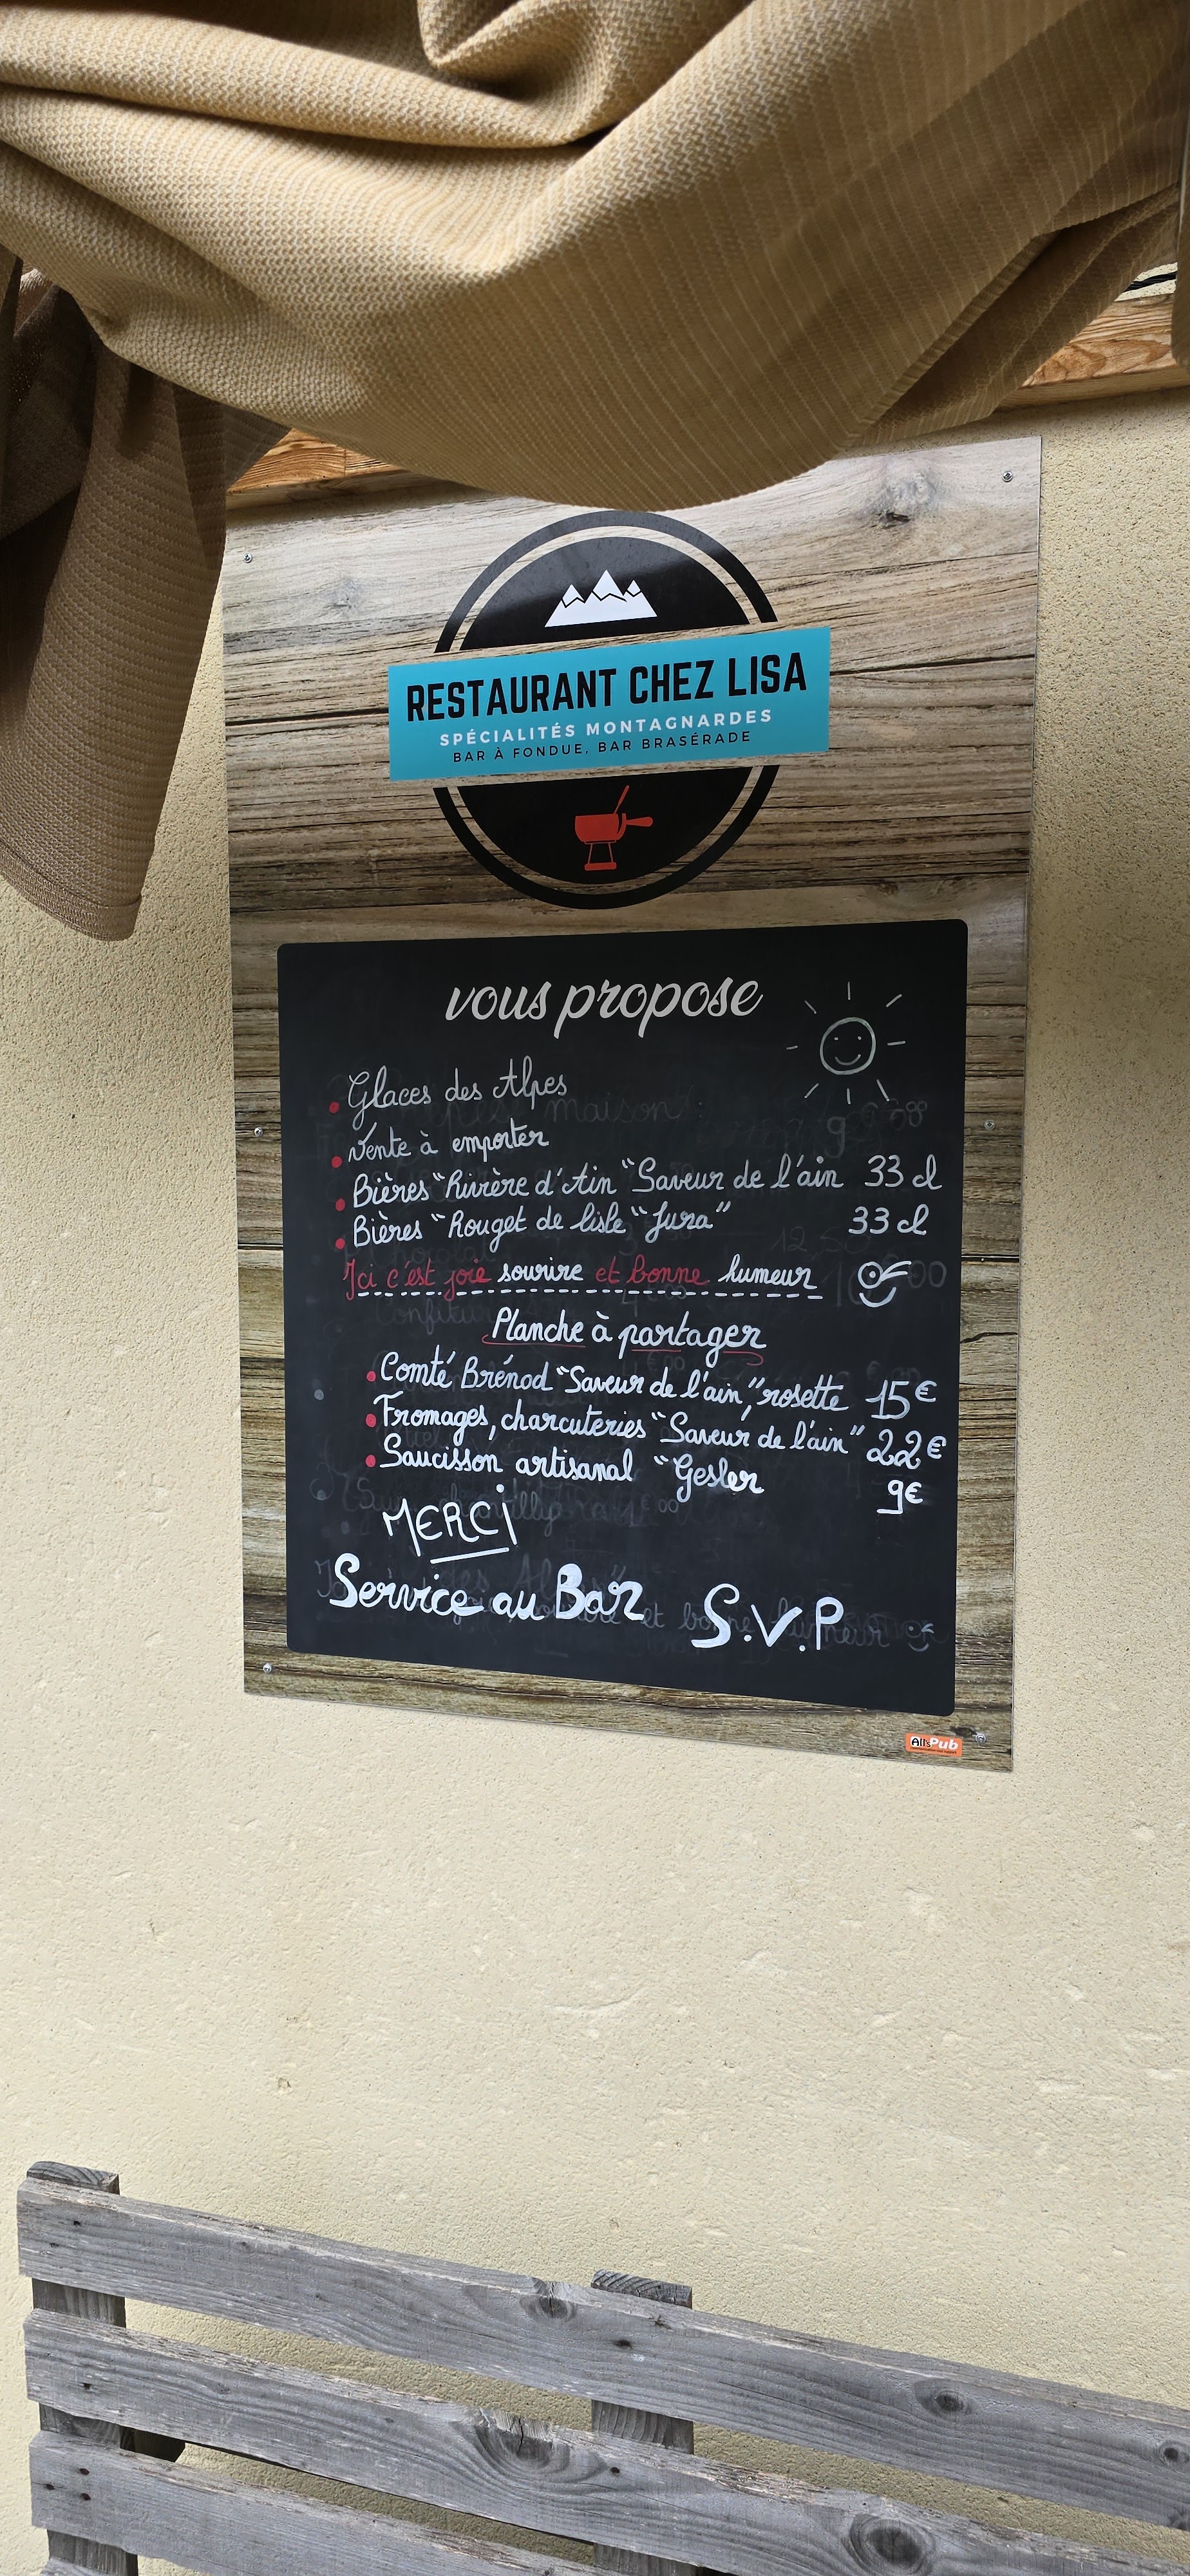 RESTAURANT CHEZ LISA
SPÉCIALITÉS MONTAGNARDES
BAR À FONDUE, BAR BRASÉRADE
vous propose
Glaces des Alpes
Vente à emporter
Bières "Rivière d'Ain "Saveur de l'ain 33 cl
Bières "Rouget de lisle "Jura" 33 cl
Ici c'est joie sourire et bonne humeur
Planche à partager
Comté Brénod "Saveur de l'ain", rosette 15€
Fromages, charcuteries "Saveur de l'ain" 22€
Saucisson artisanal "Gesler 9€
MERCi
Service au Bar S.V.P
All'sPub